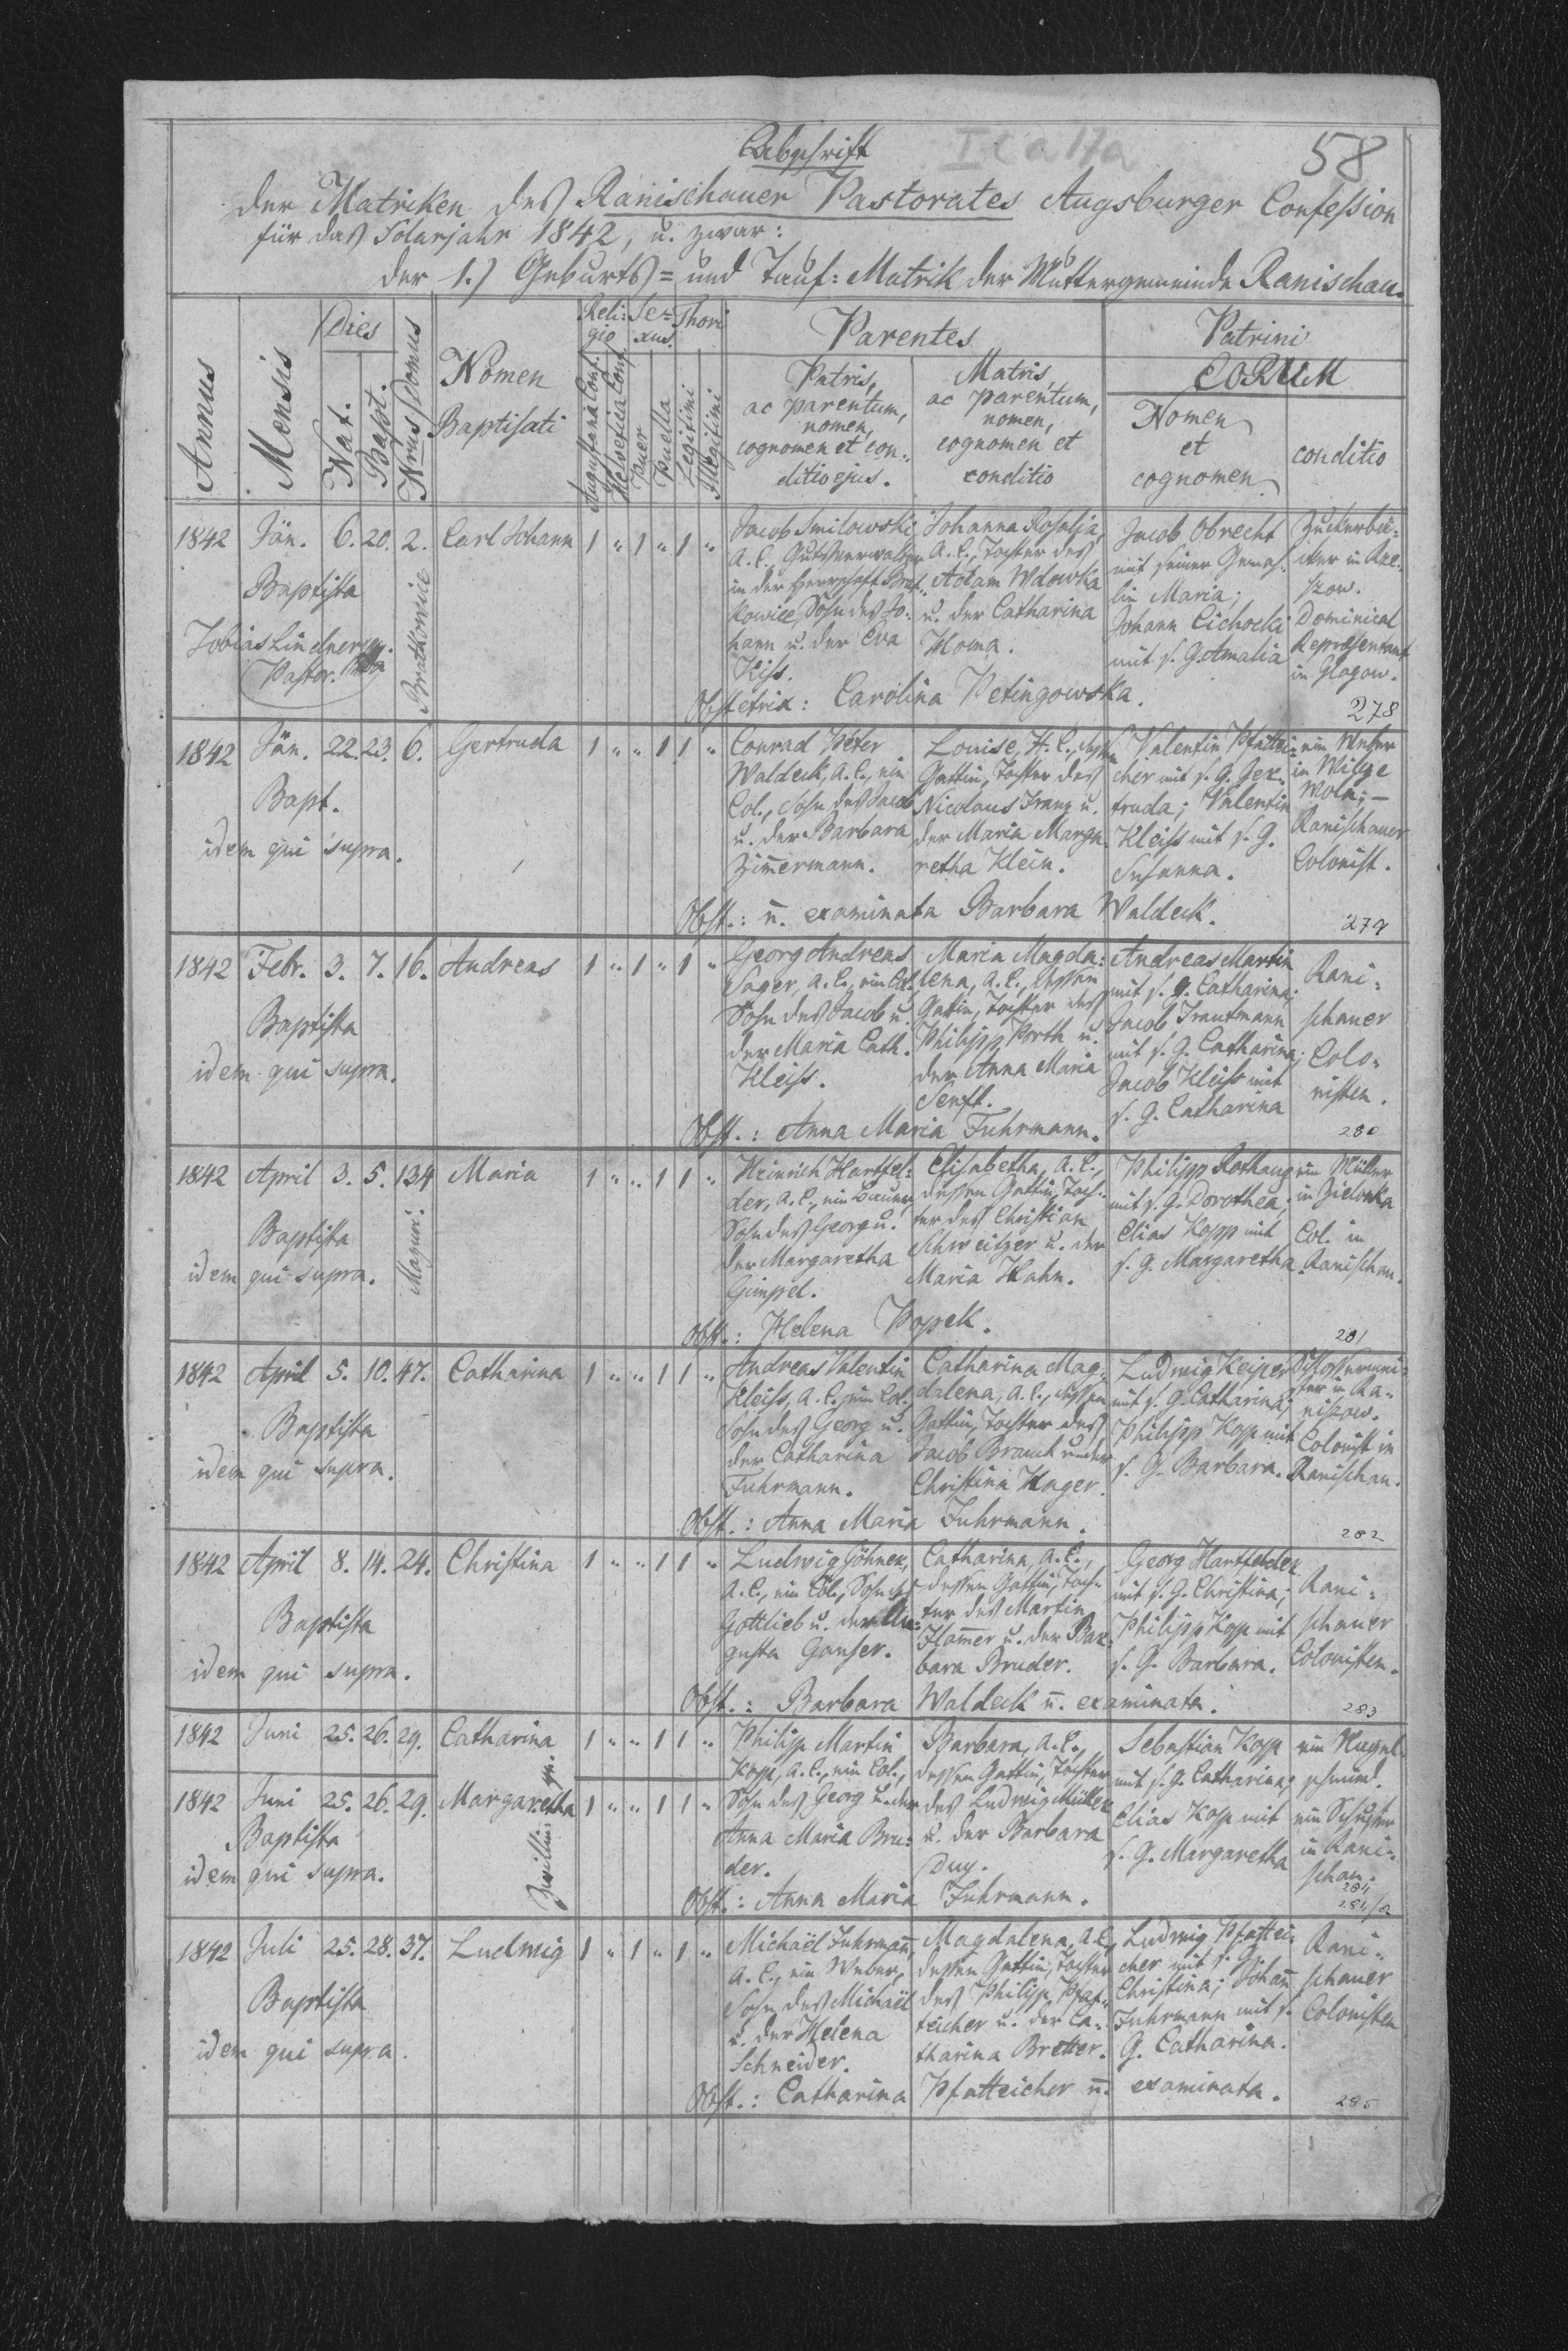 Abschrift
58
der Matriken des Ranischauer Pastorates Augsburger Confession
für das Solarjahr 1842, u. zwar:
der 1.) Geburts= und Tauf=Matrik der Muttergemeinde Ranischau.
Annus
Mensis
Dies
Nat.
Bapt.
Nrus Domus
Nomen
Baptisati
Reli=
gio
Augustana Conf.
Helvetica Conf.
Se=
xus.
Puer
Puella
Thori
Legitimi
Illegitimi
Parentes
Patris,
ac parentum,
nomen,
cognomen et con=
ditio ejus.
Matris,
ac parentum,
nomen,
cognomen et
conditio
Patrini
EORUM
Nomen
et
cognomen
conditio
1842 Jän. 6. 20. 2. Carl Johann 1 " 1 " 1 "
Baptista
Tobias Lindner
Pastor.
Bratkowice
Jacob Smilowski,
A. C., Gutsverwalter
in der Herrschaft Brat=
kowice, Sohn des Jo=
hann u. der Eva
Kiss.
Johanna Rosalia,
A. C., Tochter des
Adam Wdowka
u. der Catharina
Homa.
Jacob Obrecht
mit seiner Gemah=
lin Maria;
Johann Cichocki
mit s. G. Amalia
Zuckerbä=
cker in Rze=
szow.
Dominical
Repræsentant
in Glogow.
Obstetrix: Carolina Petingowska.
278
1842 Jän. 22. 23. 6. Gertruda 1 " " 1 1 "
Bapt.
idem qui supra.
Conrad Peter
Waldeck, A. C., ein
Col., Sohn des Jacob
u. der Barbara
Zim̅ermann.
Louise, H. C., dessen
Gattin, Tochter des
Nicolaus Franz u.
der Maria Marga=
retha Klein.
Valentin Pfattei=
cher mit s. G. Ger=
truda; Valentin
Kleiss mit s. G.
Susanna.
ein Weber
in Wilcze
Wola; —
Ranischauer
Colonist.
Obst.: n̅. examinata Barbara Waldeck.
279
1842 Febr. 3. 7. 16. Andreas 1 " 1 " 1 "
Baptista
idem qui supra.
Georg Andreas
Sager, A. C., ein Col.,
Sohn des Jacob u.
der Maria Cath.
Kleiss.
Maria Magda=
lena, A. C., dessen
Gattin, Tochter des
Philipp Porth u.
der Anna Maria
Senft.
Andreas Martin
mit s. G. Catharina;
Jacob Trautmann
mit s. G. Catharina;
Jacob Kleiss mit
s. G. Catharina
Rani=
schauer
Colo=
nisten.
Obst.: Anna Maria Fuhrmann.
280
1842 April 3. 5. 134 Maria 1 " " 1 1 "
Baptista
idem qui supra.
Mazury.
Heinrich Hartfel=
der, A. C., ein Bauer,
Sohn des Georg u.
der Margaretha
Gimpel.
Elisabetha, A. C.,
dessen Gattin, Toch=
ter des Christian
Schweitzer u. der
Maria Hahn.
Philipp Rothaug
mit s. G. Dorothea;
Elias Kopp mit
s. G. Margaretha
ein Müller
in Zielonka
Col. in
Ranischau.
Obst.: Helena Popek.
281
1842 April 5. 10. 47. Catharina 1 " " 1 1 "
Baptista
idem qui supra.
Andreas Valentin
Kleiss, A. C., ein Col.
Sohn des Georg u.
der Catharina
Fuhrmann.
Catharina Mag=
dalena, A. C., dessen
Gattin, Tochter des
Jacob Brauch u. der
Christina Hager.
Ludwig Keiper
mit s. G. Catharina;
Philipp Kopp mit
s. G. Barbara.
Schlossermei=
ster in Ra=
niszow.
Colonist in
Ranischau.
Obst.: Anna Maria Fuhrmann.
282
1842 April 8. 14. 24. Christina 1 " " 1 1 "
Baptista
idem qui supra.
Ludwig Göhner,
A. C., ein Col., Sohn des
Gottlieb u. der Au=
gusta Ganser.
Catharina, A. C.,
dessen Gattin, Toch=
ter des Martin
Ham̅er u. der Bar=
bara Bruder.
Georg Hartfelder
mit s. G. Christina;
Philipp Kopp mit
s. G. Barbara.
Rani=
schauer
Colonisten.
Obst.: Barbara Waldeck n̅. examinata.
283
1842 Juni 25. 26. 29. Catharina 1 " " 1 1 "
1842 Juni 25. 26. 29. Margaretha 1 " " 1 1 "
Baptista
idem qui supra.
Philipp Martin
Kopp, A. C., ein Col.,
Sohn des Georg u. der
Anna Maria Bru=
der.
Barbara, A. C.,
dessen Gattin, Tochter
des Ludwig Müller
u. der Barbara
Duy.
Sebastian Kopp
mit s. G. Catharina;
Elias Kopp mit
s. G. Margaretha
ein Nagel=
schmied.
ein Schuster
in Rani=
schau.
Obst.: Anna Maria Fuhrmann.
284
284/a
1842 Juli 25. 28. 37. Ludwig 1 " 1 " 1 "
Baptista
idem qui supra.
Michaël Fuhrman̅,
A. C., ein Weber,
Sohn des Michaël
u. der Helena
Schneider.
Magdalena, A. C.,
dessen Gattin, Tochter
des Philipp Pfat=
teicher u. der Ca=
tharina Bretter.
Ludwig Pfattei=
cher mit s. G.
Christina; Johan̅
Fuhrmann mit s.
G. Catharina.
Rani=
schauer
Colonisten
Obst.: Catharina Pfatteicher n̅. examinata.
285